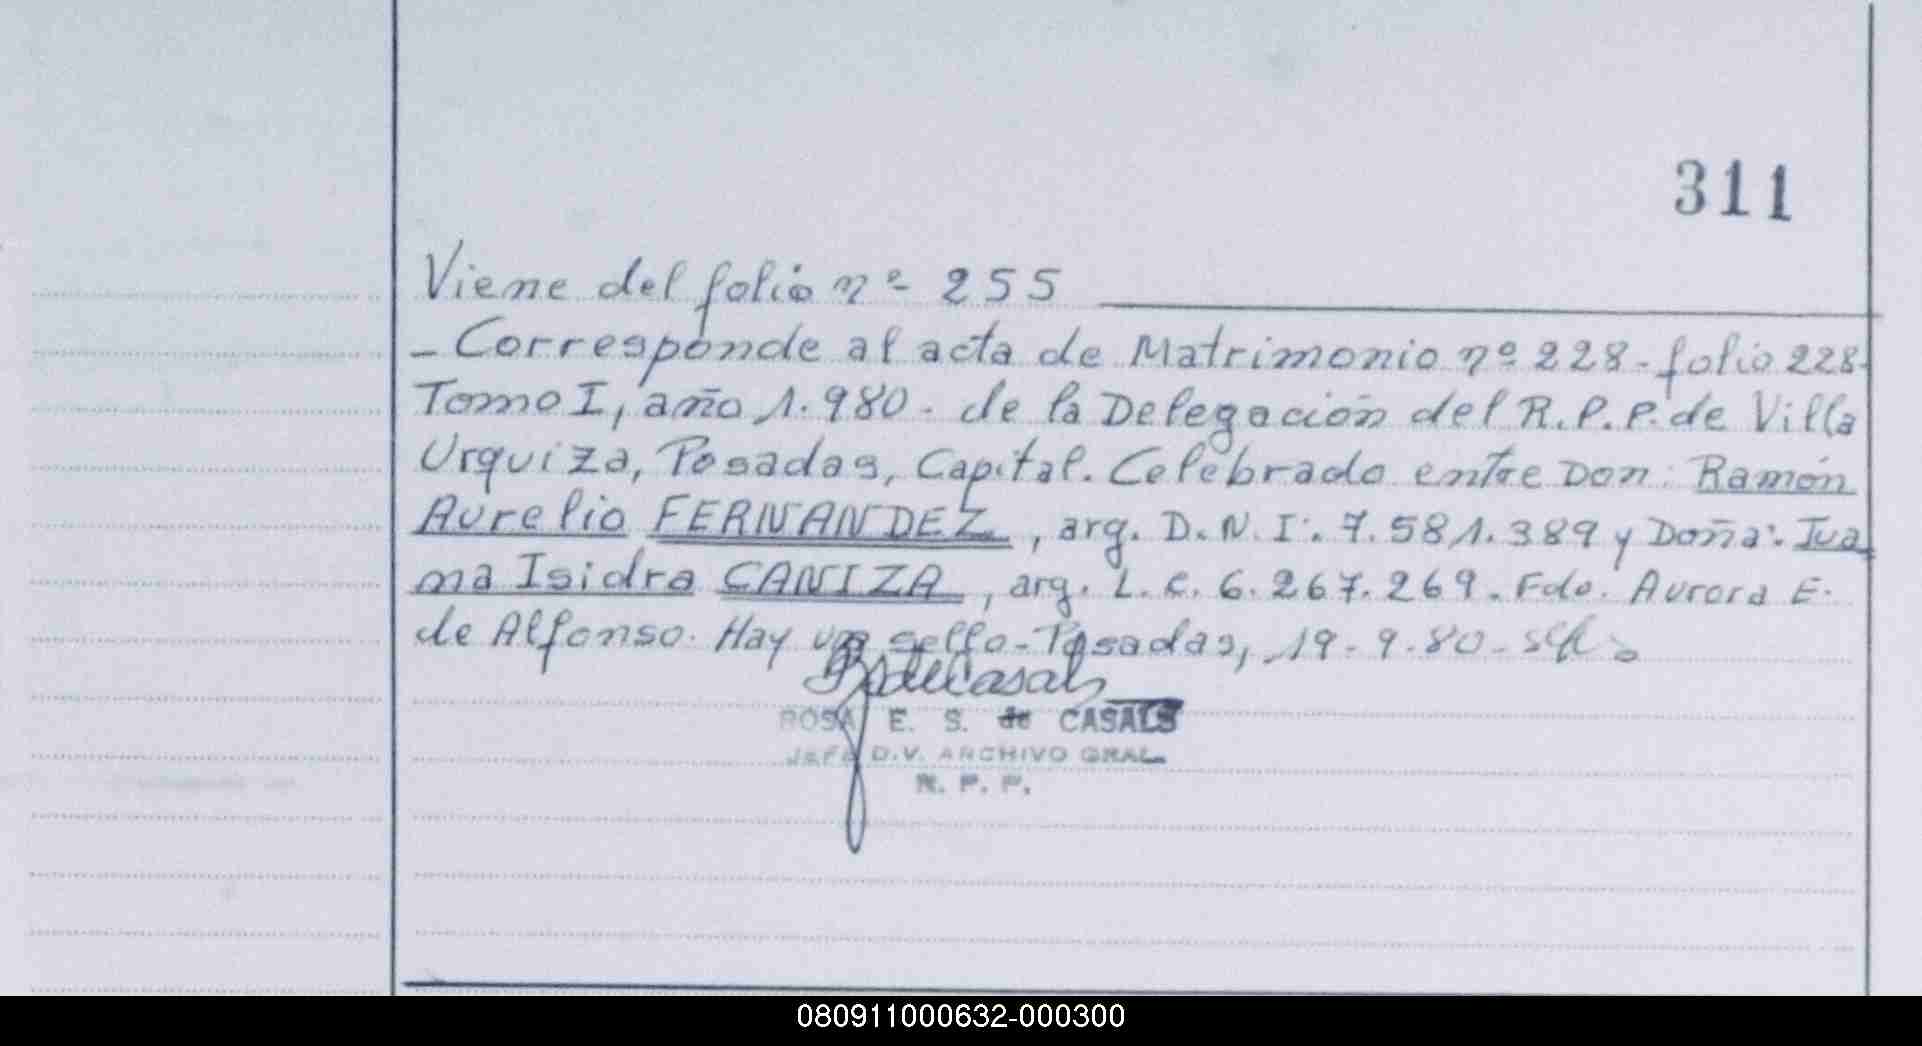 311
Viene del folio nº 255
- Corresponde al acta de Matrimonio nº 228 - folio 228-
Tomo I, año 1.980 - de la Delegación del R.P.P. de Villa
Urquiza, Posadas, Capital. Celebrado entre Don: Ramón
Aurelio FERNANDEZ, arg. D.N.I. 7.581.389 y Doña: Jua
na Isidra CANIZA, arg. L.C. 6.267.269. Fdo. Aurora E.
de Alfonso. Hay un sello - Posadas, 19-9-80-
ROSA E. S. de CASALS
JEFE D.V. ARCHIVO GRAL.
R. P. P.
080911000632-000300